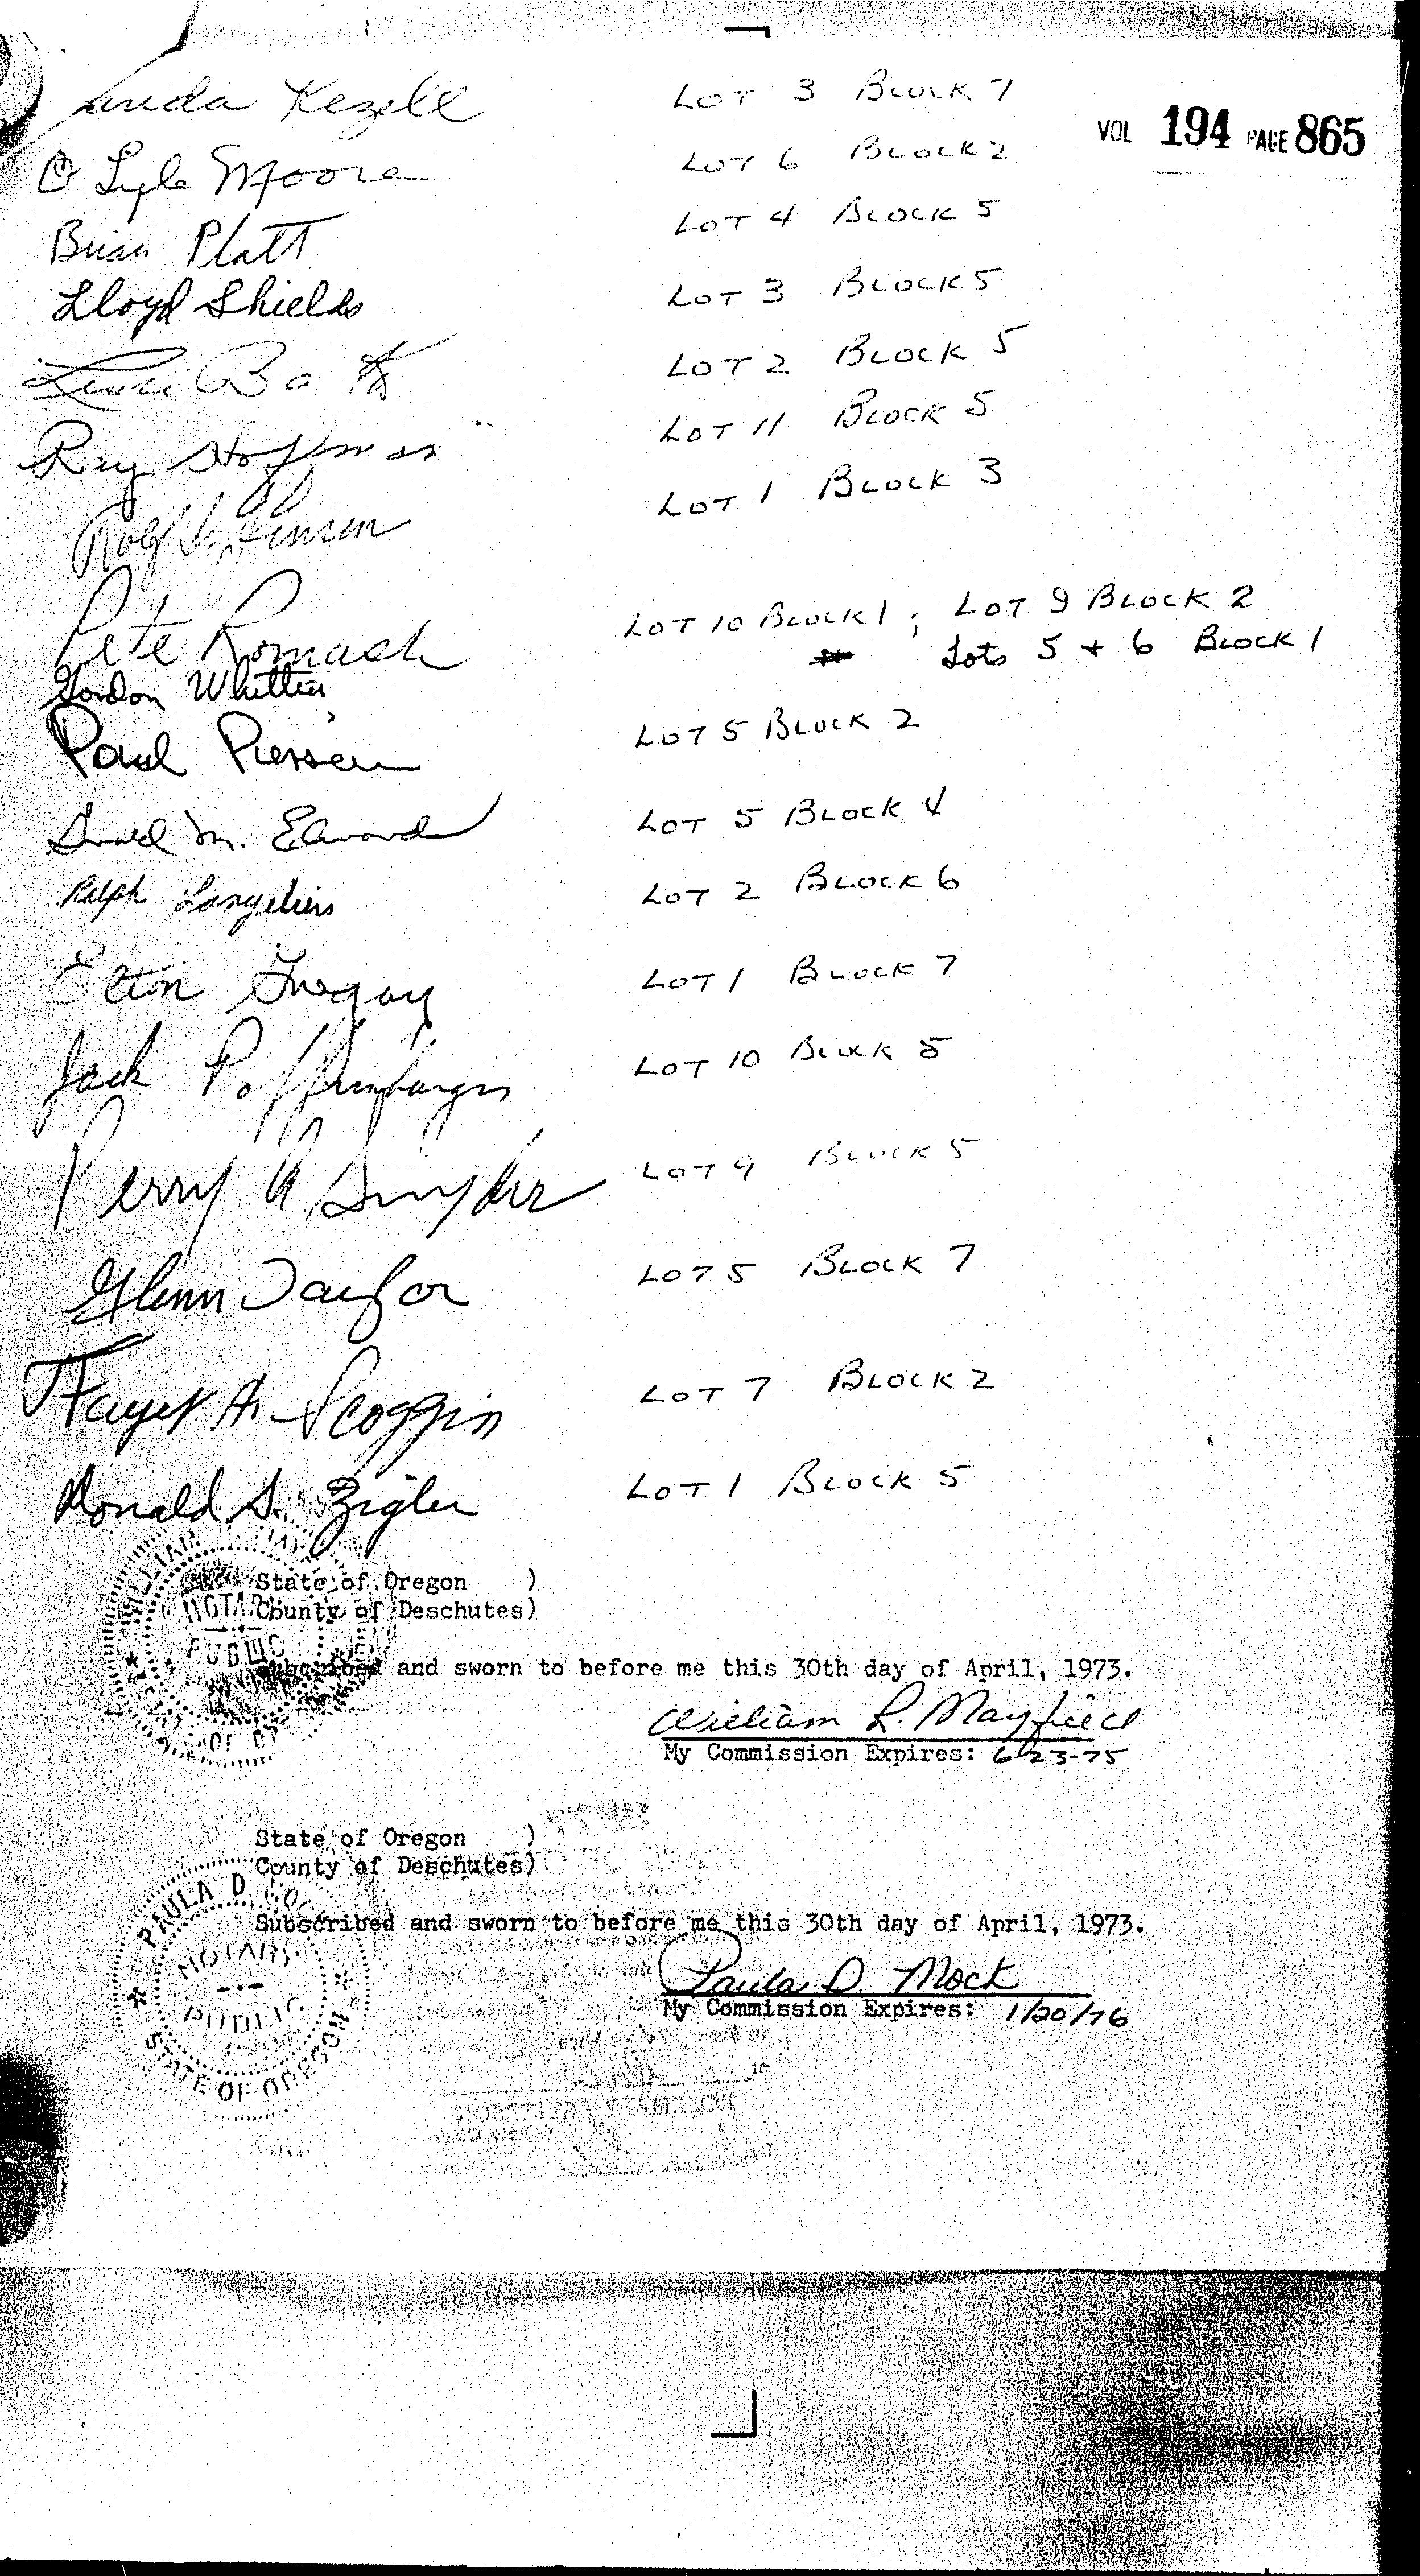 Linda Kezele LOT 3 BLOCK 7
VOL 194 PAGE 865
O Lyle Moore LOT 6 BLOCK 2
Brian Platt LOT 4 BLOCK 5
Lloyd Shields LOT 3 BLOCK 5
LOT 2 BLOCK 5
Ray Hoffman LOT 11 BLOCK 5
LOT 1 BLOCK 3
Pete Romash LOT 10 BLOCK 1 ; LOT 9 BLOCK 2
Lots 5 + 6 BLOCK 1
Gordon Whittier
Paul LOT 5 BLOCK 2
M. Edward LOT 5 BLOCK 4
Ralph Langeliers LOT 2 BLOCK 6
Elton Gregory LOT 1 BLOCK 7
Jack Poffenbarger LOT 10 BLOCK 5
Perry A Snyder LOT 9 BLOCK 5
Glenn Taylor LOT 5 BLOCK 7
A. Scoggin LOT 7 BLOCK 2
Ronald S. Zigler LOT 1 BLOCK 5
State of Oregon )
County of Deschutes)
WILLIAM
NOTARY
PUBLIC
STATE OF
Subscribed and sworn to before me this 30th day of April, 1973.
William L. Mayfield
My Commission Expires: 6-23-75
State of Oregon )
County of Deschutes)
PAULA D
NOTARY
PUBLIC
STATE OF OREGON
Subscribed and sworn to before me this 30th day of April, 1973.
Paula D. Mock
My Commission Expires: 1/20/76